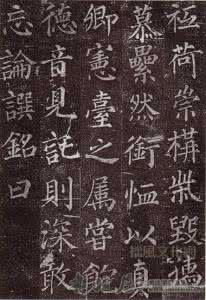 祗荷崇構泯毀墻
慕纍然銜恤以真
卿憲臺之属嘗飽
德音見託則深敢
忘論譔銘曰